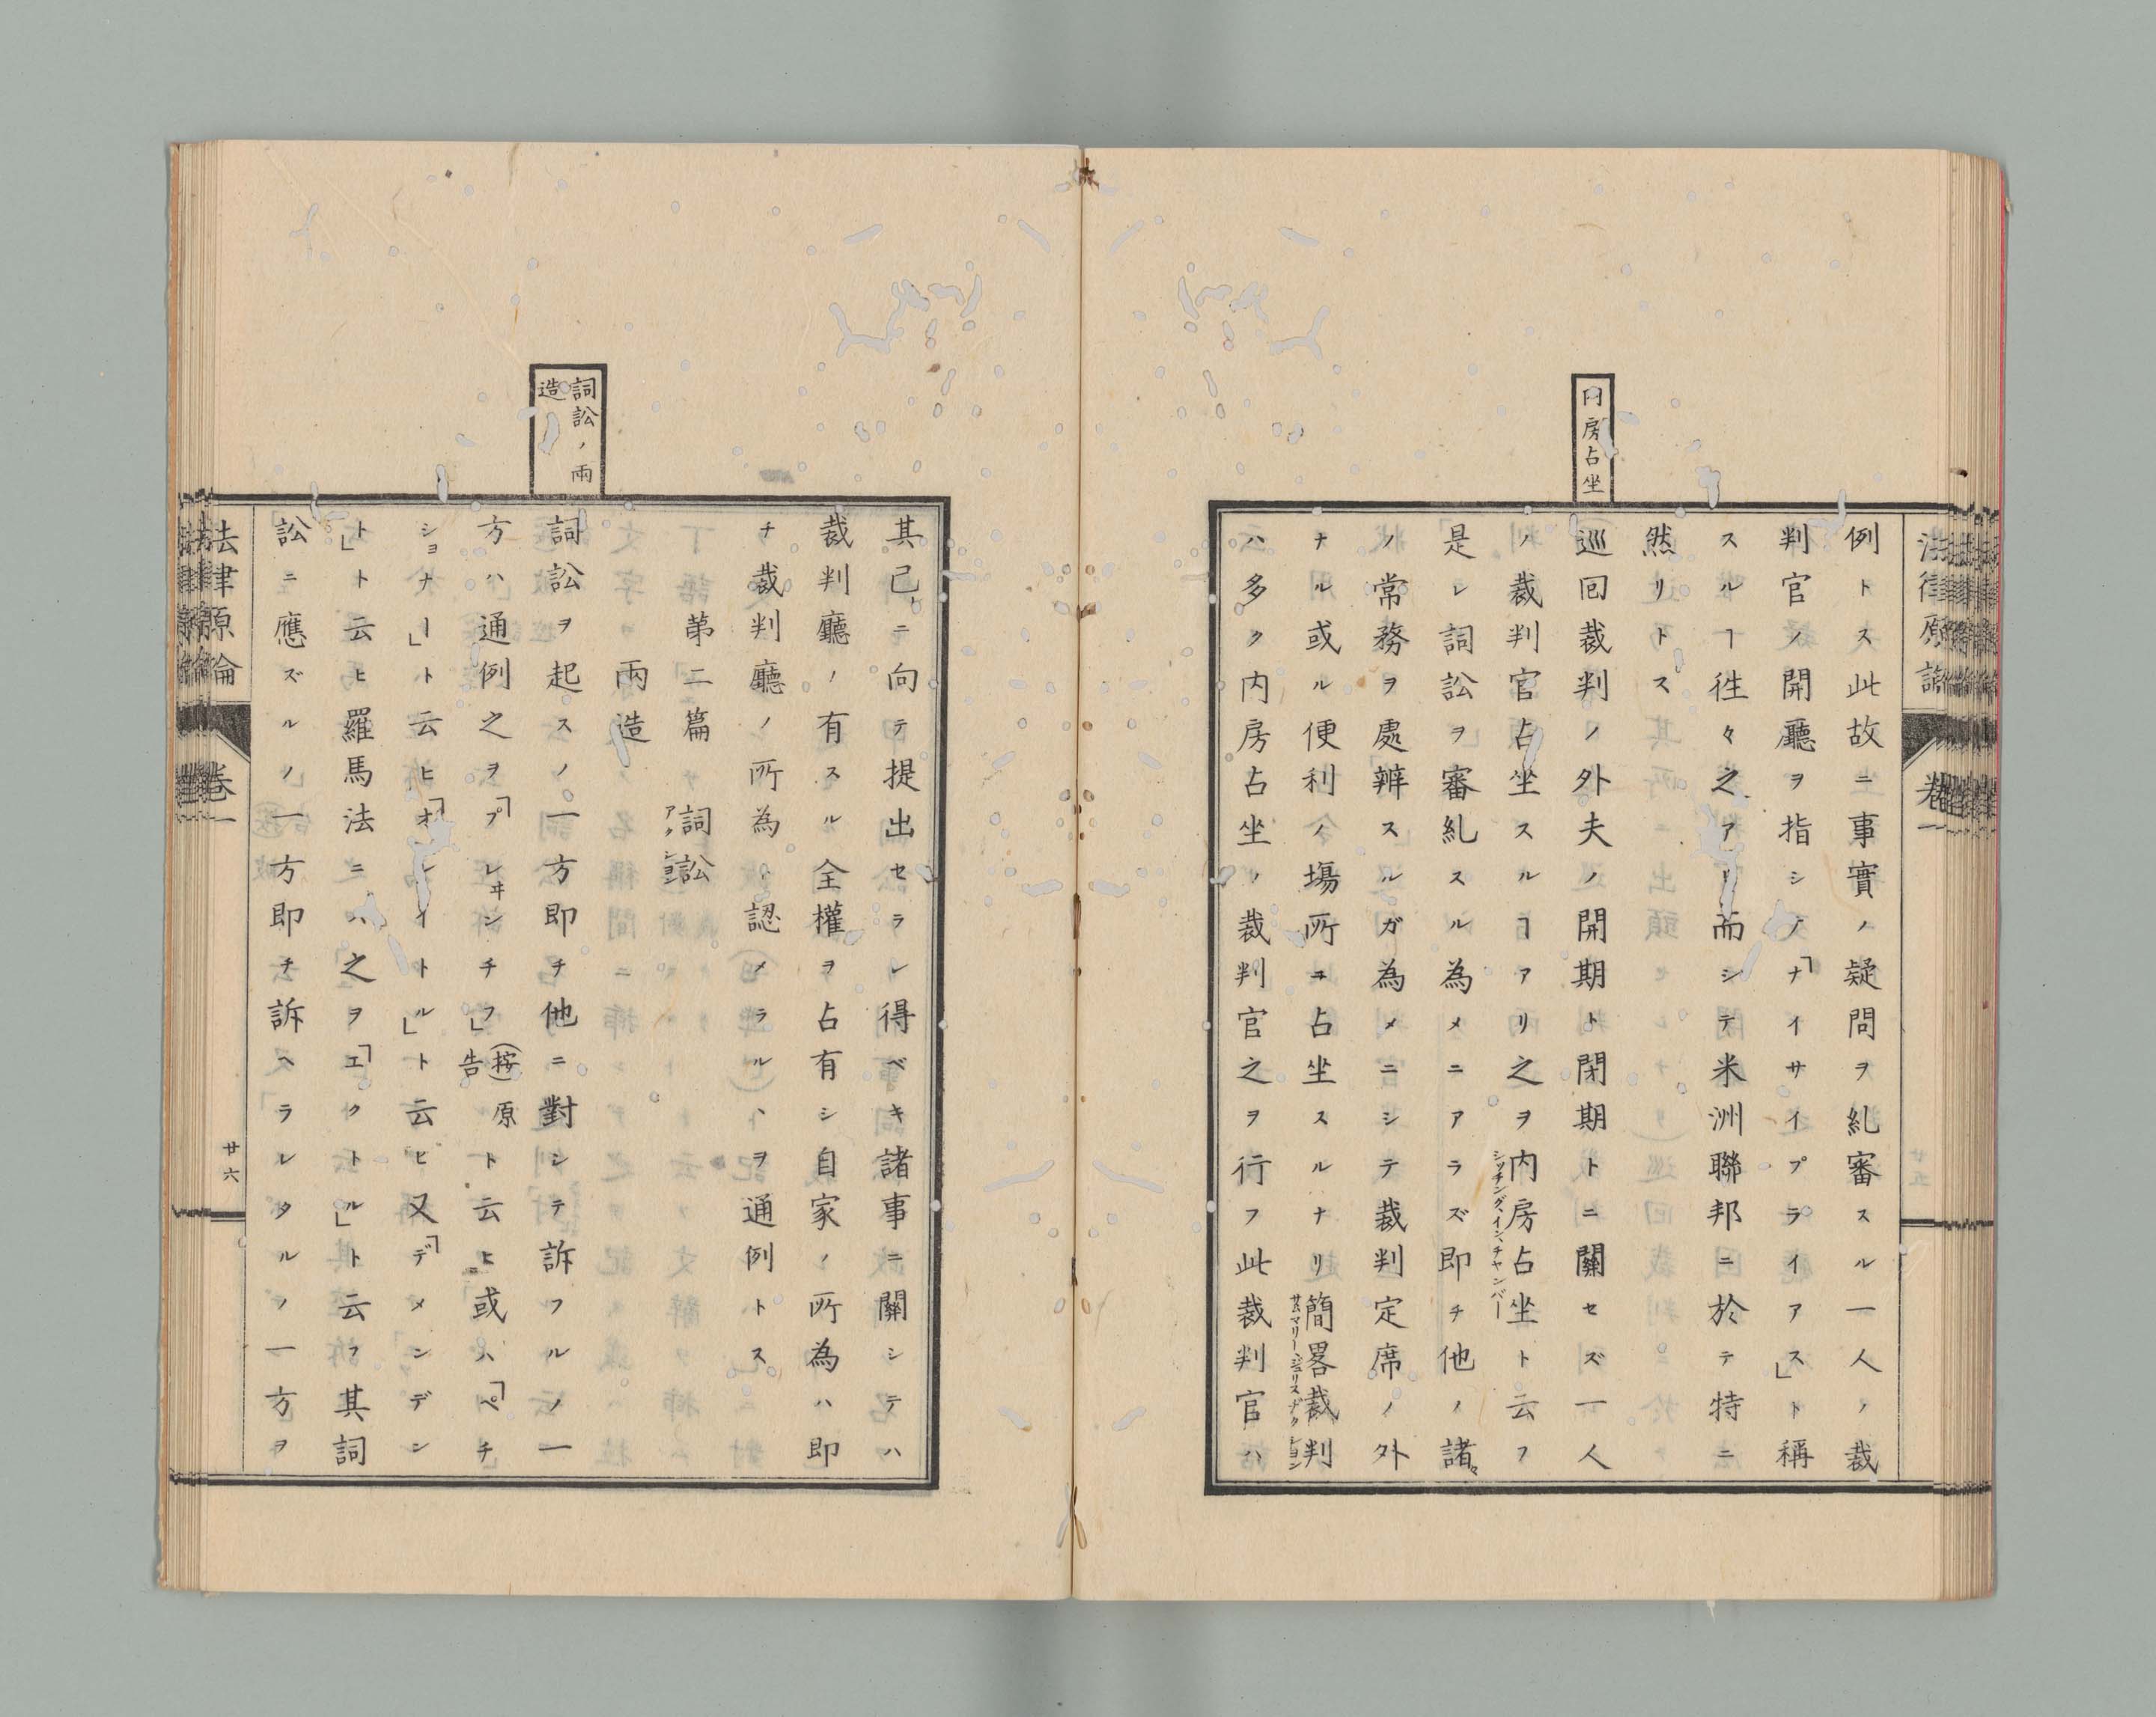 法律原論 卷一
内房占坐
例トス此故ニ事實ノ疑問ヲ糺審スル一人ノ裁
判官ノ開廳ヲ指シノ「ナイサイプライアス」ト稱
スルヿ徃々之アリ而シテ米洲聯邦ニ於テ特ニ
然リトス
巡回裁判ノ外夫ノ開期ト閉期トニ關セズ一人
ノ裁判官占坐スルヿアリ之ヲ内房占坐ト云フ
シッチング、イン、チャンバー
是レ詞訟ヲ審糺スル為メニアラズ即チ他ノ諸々
ノ常務ヲ處辨スルガ為メニシテ裁判定席ノ外
ナル或ル便利ノ塲所ニ占坐スルナリ簡畧裁判
サムマリー、ジュリスヂクション
ハ多ク内房占坐ノ裁判官之ヲ行フ此裁判官ハ
其已ニ向テ提出セラレ得ベキ諸事ニ關シテハ
裁判廳ノ有スル全權ヲ占有シ自家ノ所為ハ即
チ裁判廳ノ所為ト認メラルヽヲ通例トス
第二篇 詞訟
アクション
兩造
詞訟ノ兩
造
詞訟ヲ起スノ一方即チ他ニ對シテ訴フルノ一
方ハ通例之ヲ「プレヰンチフ」(按 原告ト云ヒ或ハ「ペチ
ショナー」ト云ヒ「オレイトル」ト云ヒ又「デメンデン
ト」ト云ヒ羅馬法ニハ之ヲ「エクトル」ト云フ其詞
訟ニ應ズルノ一方即チ訴ヘラレタルノ一方ヲ
法律原論 卷一
廿六